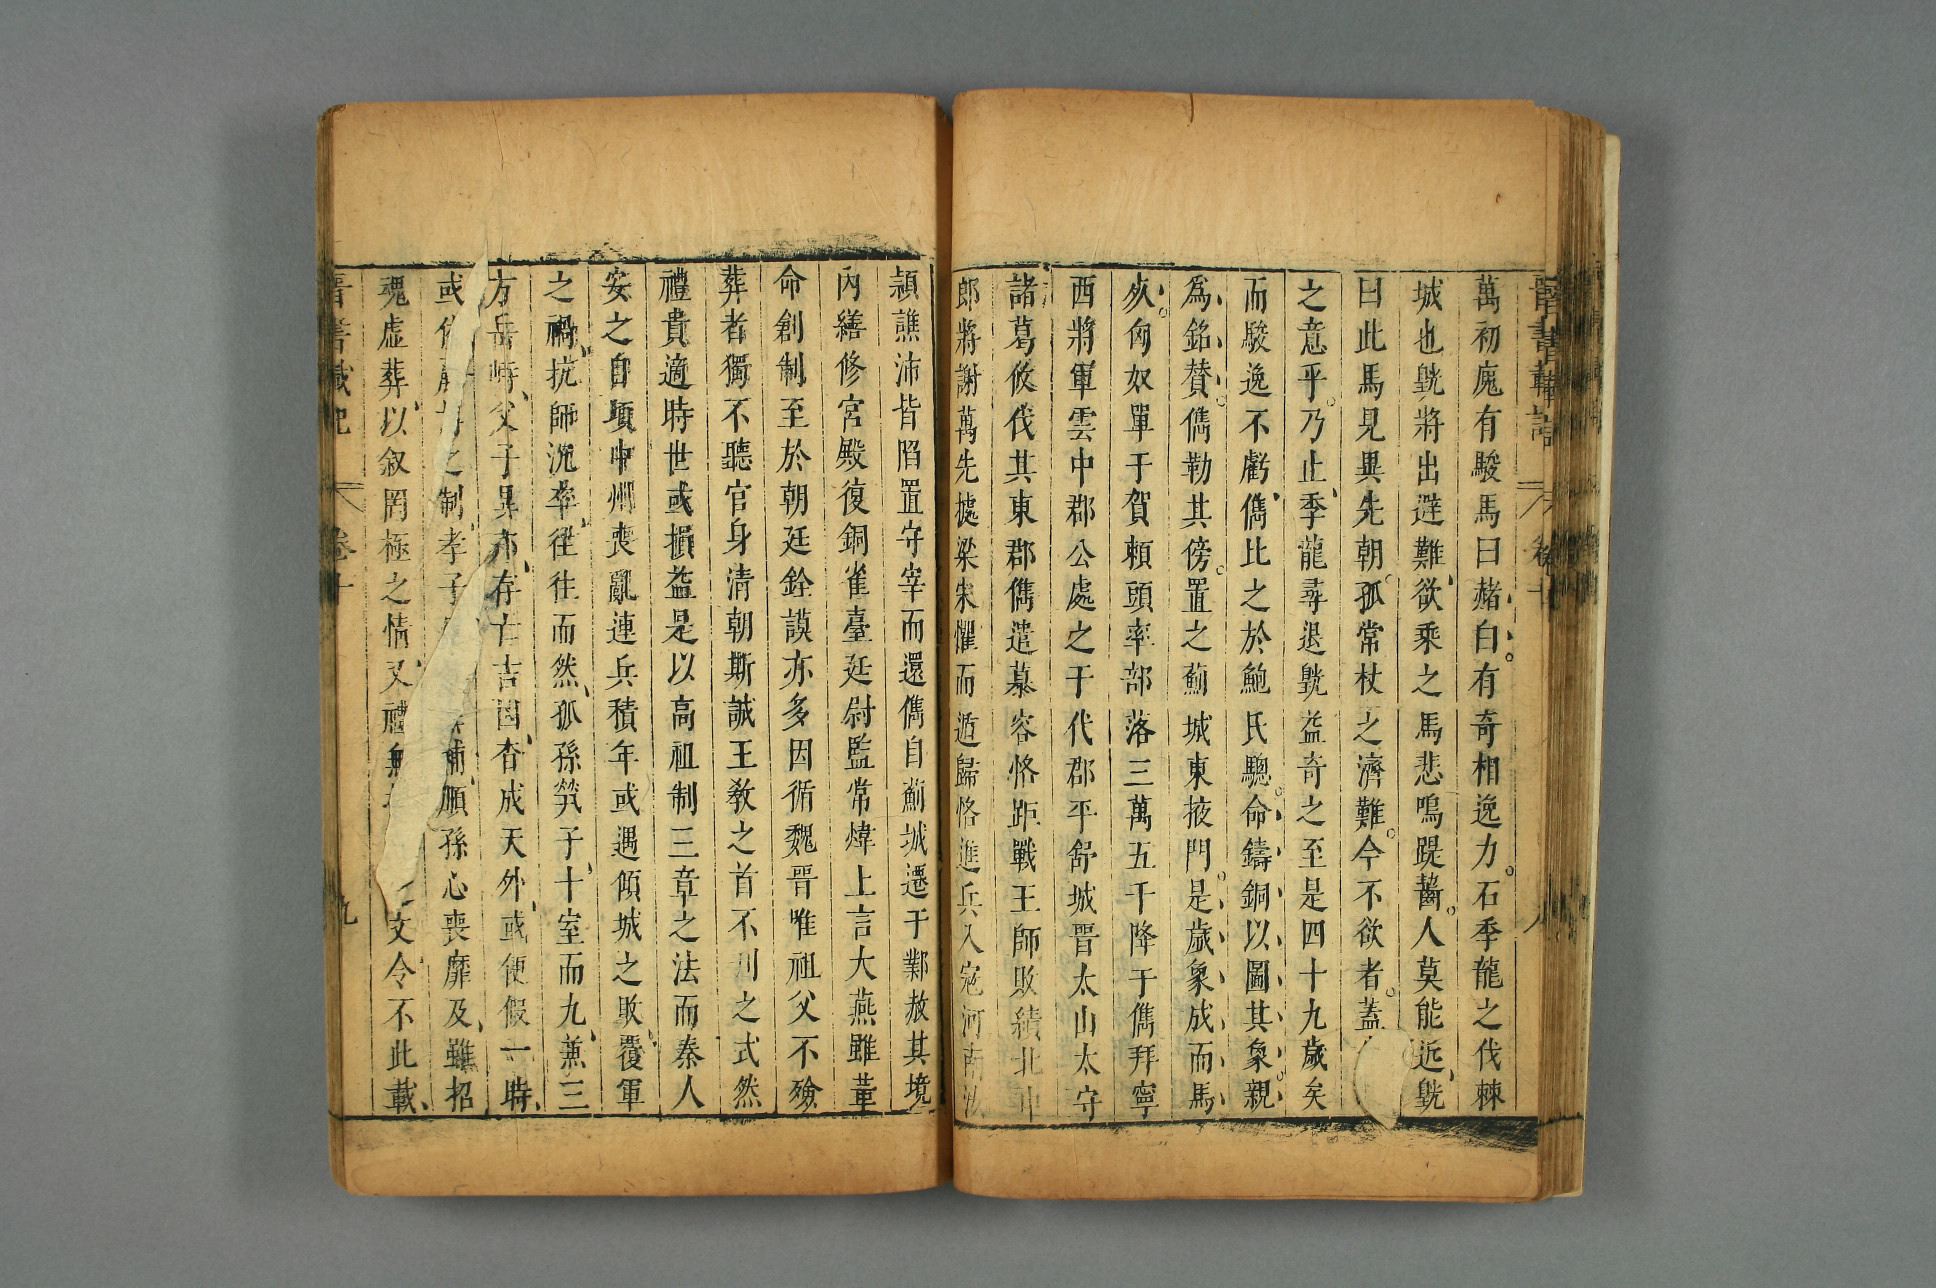 晉書載記 卷十 八
萬初廆有駿馬曰赭白有奇相逸力石季龍之伐棘
城也皝將出避難欲乘之馬悲鳴踶齧人莫能近皝
曰此馬見異先朝孤常杖之濟難今不欲者蓋
之意乎乃止季龍尋退皝益奇之至是四十九歲矣
而駿逸不虧儁比之於鮑氏驄命鑄銅以圖其象親
爲銘贊儁勒其傍置之薊城東掖門是歲象成而馬
死匈奴單于賀賴頭率部落三萬五千降于儁拜寧
西將軍雲中郡公處之于代郡平舒城晉太山太守
諸葛攸伐其東郡儁遣慕容恪距戰王師敗績北中
郎將謝萬先據梁宋懼而遁歸恪進兵入寇河南汝
潁譙沛皆陷置守宰而還儁自薊城遷于鄴赦其境
內繕修宮殿復銅雀臺廷尉監常煒上言大燕雖革
命創制至於朝廷銓謨亦多因循魏晉唯祖父不殮
葬者獨不聽官身清朝斯誠王敎之首不刊之式然
禮貴適時世或損益是以高祖制三章之法而秦人
安之自頃中州喪亂連兵積年或遇傾城之敗覆軍
之禍抗師沉卒往往而然孤孫煢子十室而九兼三
方岳峙父子異邦存亡吉凶杳成天外或便假一時
或依嬴博之制孝子 補順孫心喪靡及雖招
魂虛葬以叙罔極之情又禮無 文令不此載
晉書載記 卷十 九